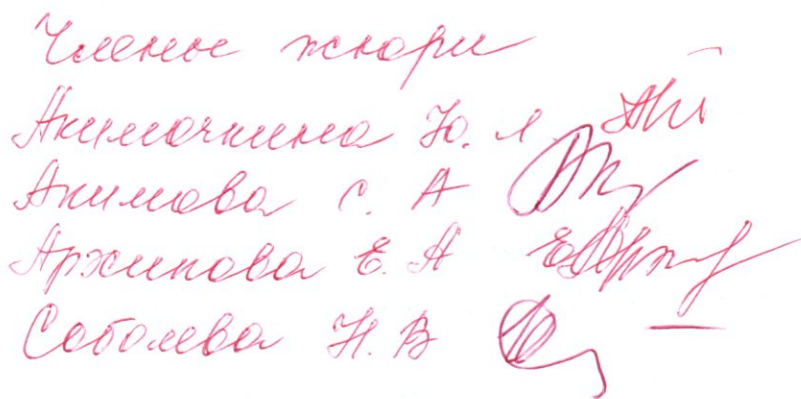 Члены жюри
Акимочкина Ю. Л
Акимова С. А
Архипова Е. А
Соболева Н. В